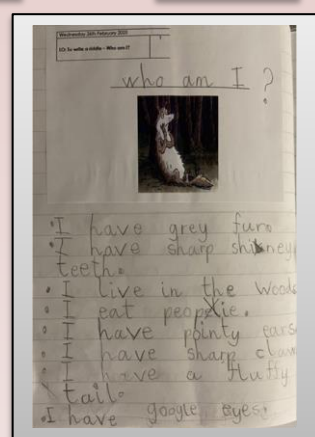 Wednesday 26th February 2020
LO: To write a riddle – Who am I?
who am I ?
• I have grey fur.
• I have sharp shiney
teeth.
• I live in the woods
• I eat people.
• I have pointy ears
• I have sharp claw
• I have a fluffy
tail.
• I have google eyes.